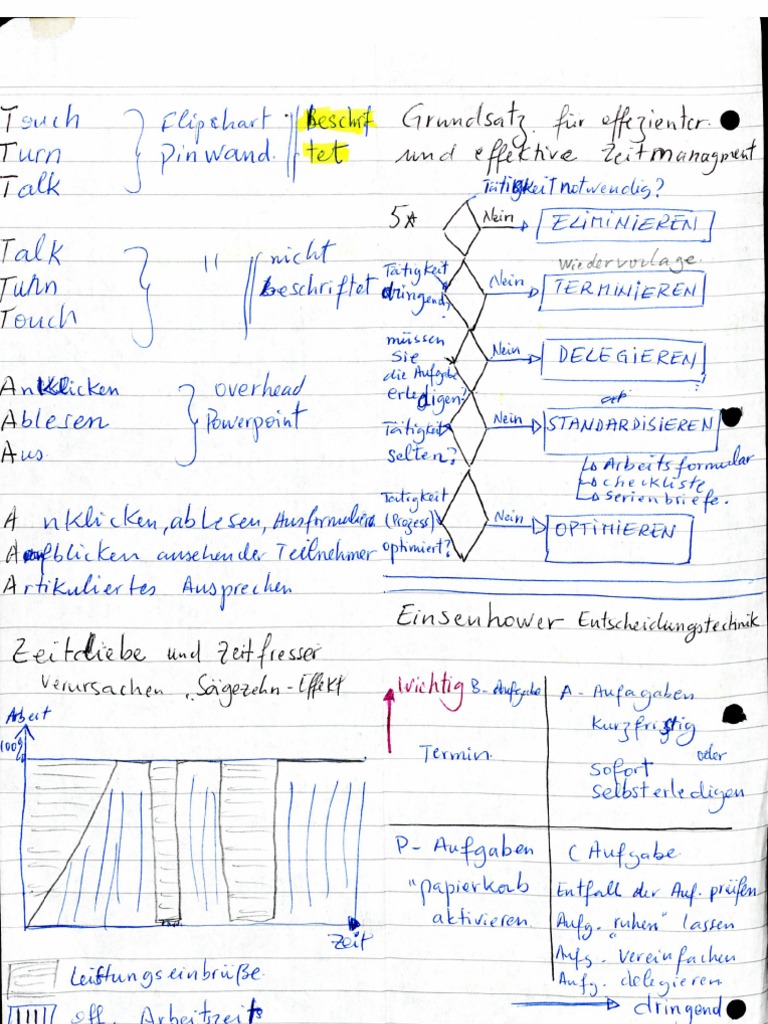 Touch
Turn
Talk
Flipchart
Pinwand.
Beschrif
tet
Talk
Turn
Touch
"
nicht
beschriftet
Anklicken
Ablesen
Aus
overhead
Powerpoint
A nklicken, ablesen, Ausformulieren
Aufblicken ansehen der Teilnehmer
Artikuliertes Aussprechen
Zeitdiebe und Zeitfresser
verursachen "Sägezehn-Effekt
Arbeit
100%
Zeit
Leistungseinbrüße
eff. Arbeitszeit
Grundsatz für effezienter
und effektive Zeitmanagment
Tätigkeit notwendig?
5x
Nein
ELIMINIEREN
Wiedervorlage
Tätigkeit
dringend?
Nein
TERMINIEREN
müssen
Sie
die Aufgabe
erledigen?
Nein
DELEGIEREN
Tätigkeit
selten?
Nein
STANDARDISIEREN
Arbeitsformular
checkliste
Serienbriefe.
Tätigkeit
(Prozess)
optimiert?
Nein
OPTIMIEREN
Einsenhower Entscheidungstechnik
Wichtig B-Aufgabe
Termin.
A-Aufagaben
Kurzfristig
oder
sofort
selbst erledigen
P-Aufgaben
"papierkob
aktivieren
C Aufgabe
Entfall der Auf. prüfen
Aufg. "ruhen" lassen
Aufg. vereinfachen
Aufg. delegieren
dringend